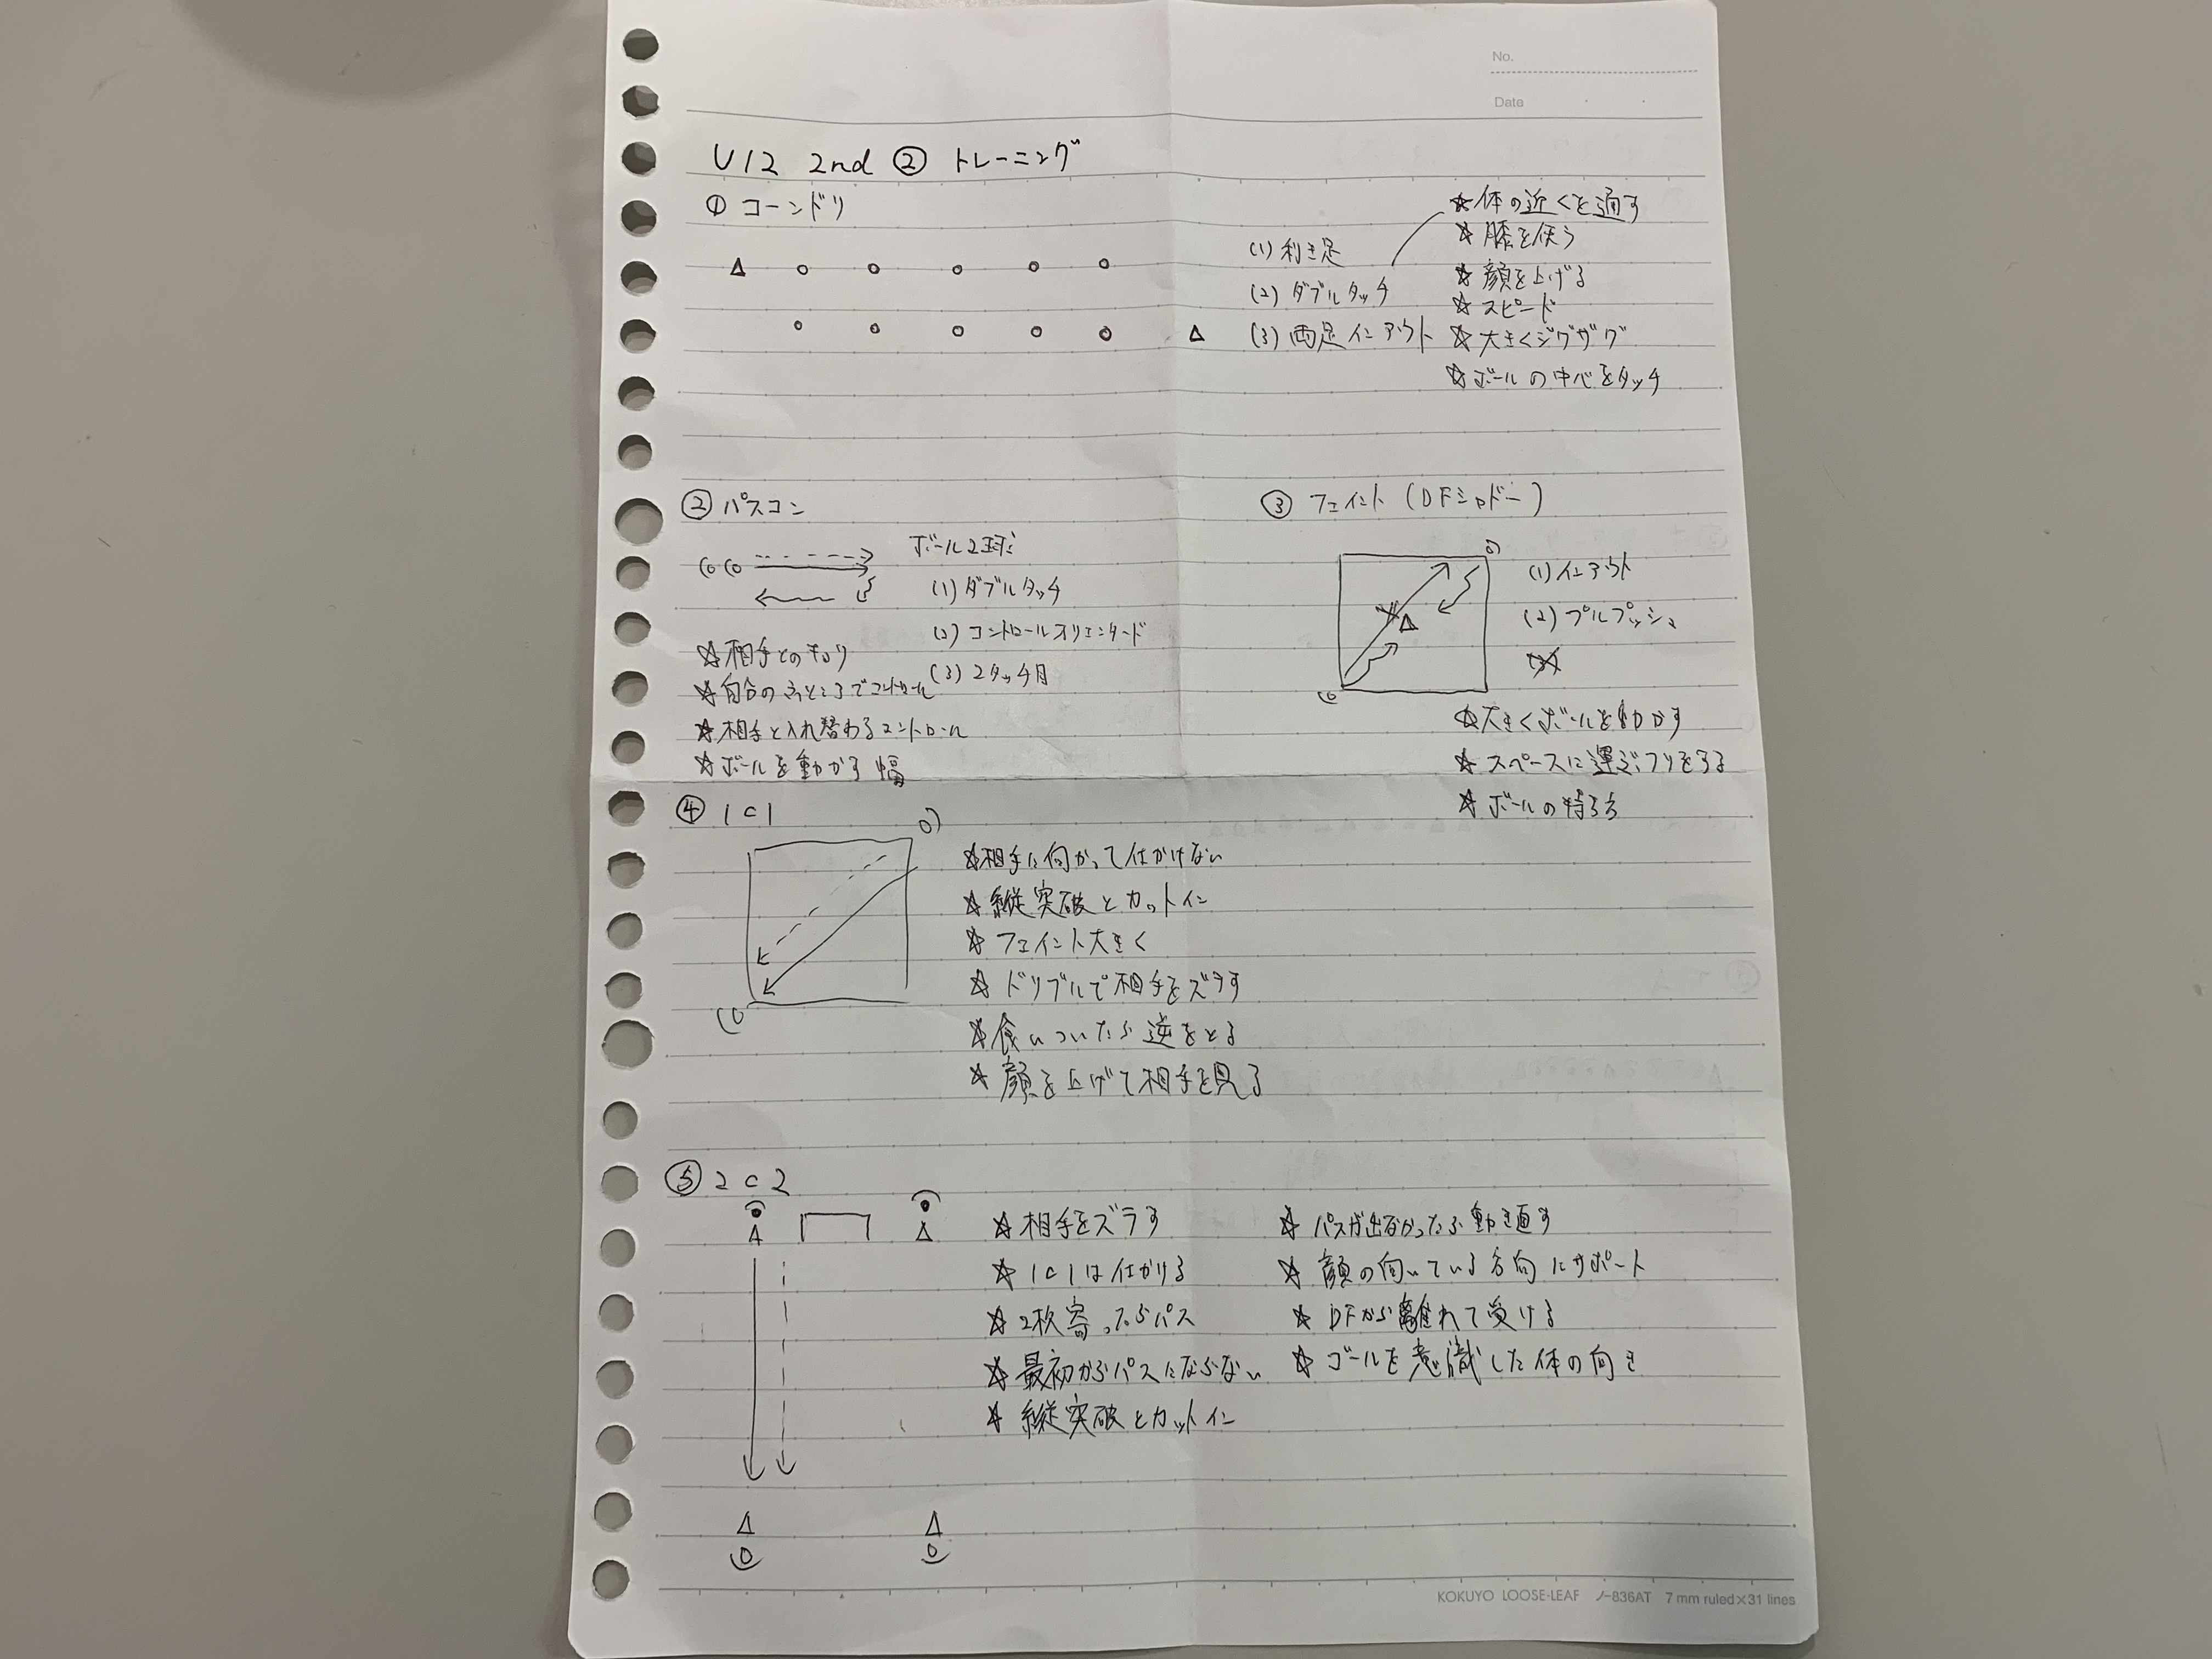 No.
Date
U12 2nd ② トレーニング
① コーンドリ
(1) 利き足
(2) ダブルタッチ
(3) 両足インアウト
☆体の近くを通す
☆膝を使う
☆顔を上げる
☆スピード
☆大きくジグザグ
☆ボールの中心をタッチ
② パスコン
ボール2球
(1) ダブルタッチ
(2) コントロールオリエンタード
(3) 2タッチ目
☆相手とのキョリ
☆自分の ところでコントロール
☆相手と入れ替わるコントロール
☆ボールを動かす幅
③ フェイント (DFシャドー)
(1) インアウト
(2) プルプッシュ
☆大きくボールを動かす
☆スペースに運ぶフリをする
☆ボールの持ち方
④ 1c1
☆相手に向かって仕かけない
☆縦突破とカットイン
☆フェイント大きく
☆ドリブルで相手をズラす
☆食いついたら逆をとる
☆顔を上げて相手を見る
⑤ 2c2
☆相手をズラす
☆1c1は仕かける
☆2枚寄ったらパス
☆最初からパスにならない
☆縦突破とカットイン
☆パスが出なかったら動き直す
☆顔の向いている方向にサポート
☆DFから離れて受ける
☆ゴールを意識した体の向き
KOKUYO LOOSE-LEAF ノ-836AT 7mm ruled×31 lines